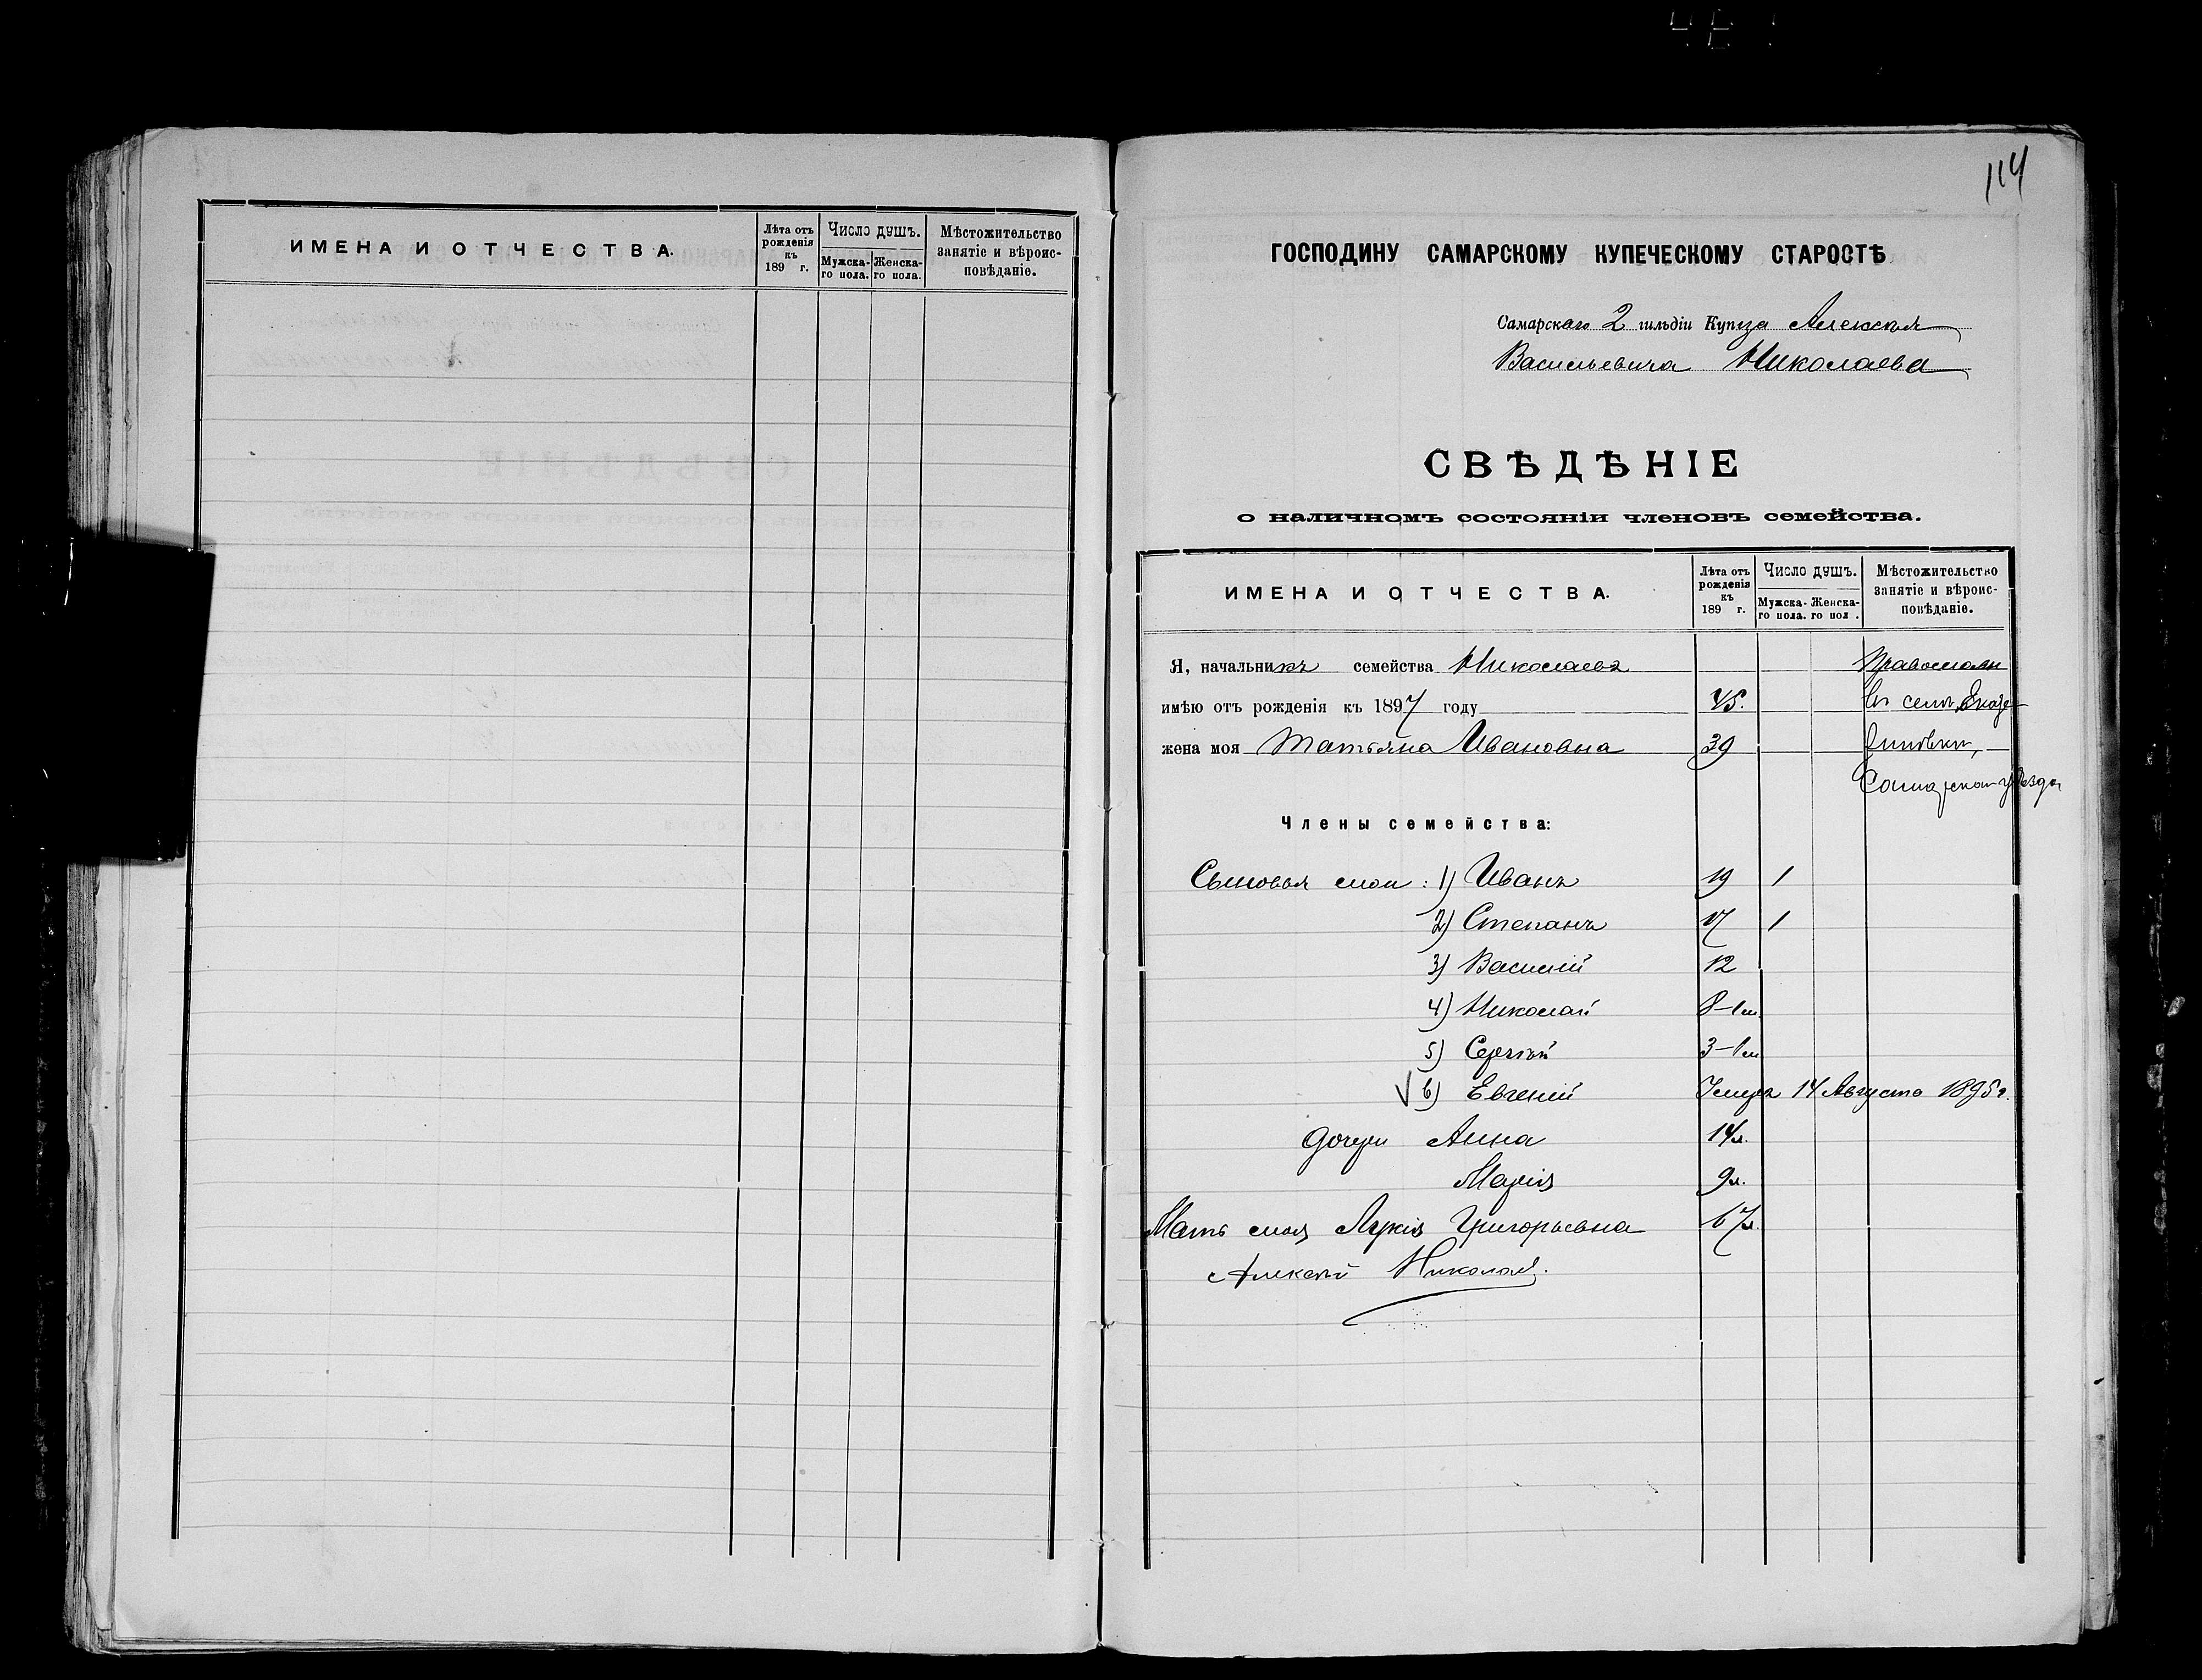 ИМЕНА И ОТЧЕСТВА.
Лѣта отъ рожденія къ 189 г.
Число душъ.
Мужска-го пола.
Женска-го пола.
Мѣстожительство занятіе и вѣроис-повѣданіе.
114
ГОСПОДИНУ САМАРСКОМУ КУПЕЧЕСКОМУ СТАРОСТѢ
Самарскаго 2 гильдіи Купца Алексѣя
Васильевича Николаева
СВѢДѢНІЕ
о наличномъ состояніи членовъ семейства.
ИМЕНА И ОТЧЕСТВА.
Лѣта отъ рожденія къ 189 г.
Число душъ.
Мужска-го пола.
Женска-го пол .
Мѣстожительство занятіе и вѣроис-повѣданіе.
Я, начальникъ семейства Николаевъ
имѣю отъ рожденія къ 1897 году 45. Въ селѣ Екате
жена моя Татьяна Ивановна 39
Самарскаго уѣзда
Члены семейства:
Сыновья мои: 1) Иванъ 19 1
2) Степанъ 17 1
3) Василій 12
4) Николай 8
5) Сергѣй 3
6) Евгеній Умеръ 14 Августа 1895 г.
дочери Анна 14 л.
Марія 9 л.
Мать моя Лукія Григорьевна 67 л.
Алексѣй Николаевъ.